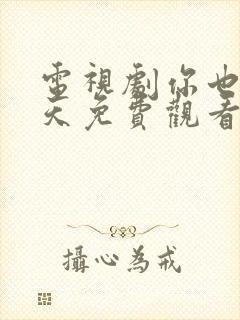 電視劇你也
天免費觀看
攝心為戒